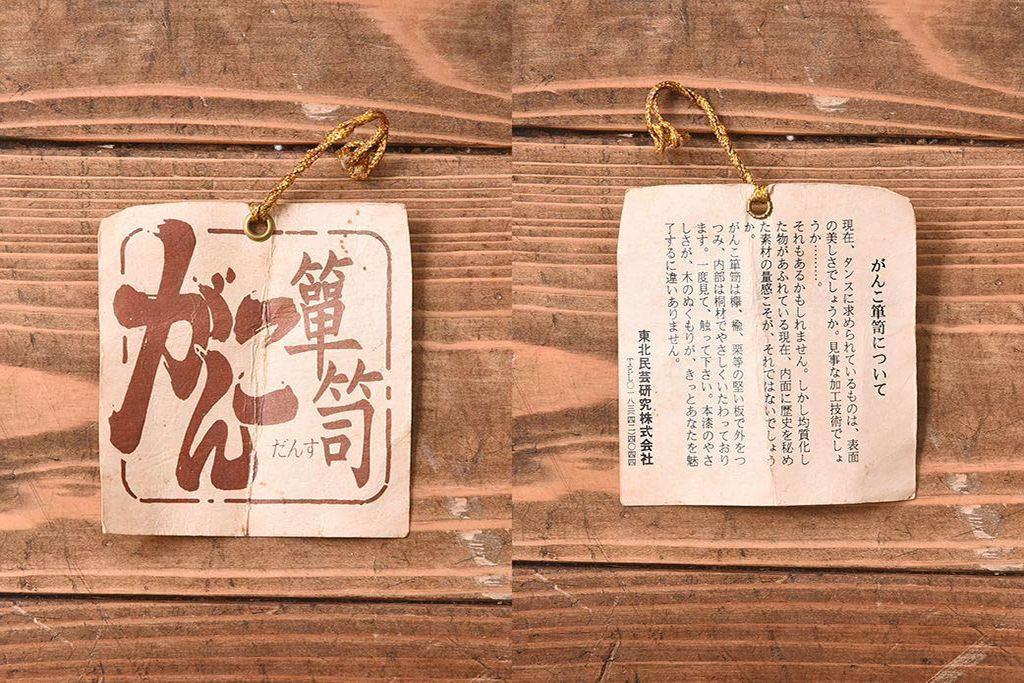 がんこ
簞笥
だんす
がんこ簞笥について
現在、タンスに求められているものは、表面
の美しさでしょうか。見事な加工技術でしょ
うか…………。
それもあるかもしれません。しかし均質化し
た物があふれている現在、内面に歴史を秘め
た素材の量感こそが、それではないでしょう
か。
がんこ簞笥は欅、楡、栗等の堅い板で外をつ
つみ、内部は桐材でやさしくいたわっており
ます。一度見て、触って下さい。本漆のやさ
しさが、木のぬくもりが、きっとあなたを魅
了するに違いありません。
東北民芸研究株式会社
TEL〇一八三四-二-四〇四四